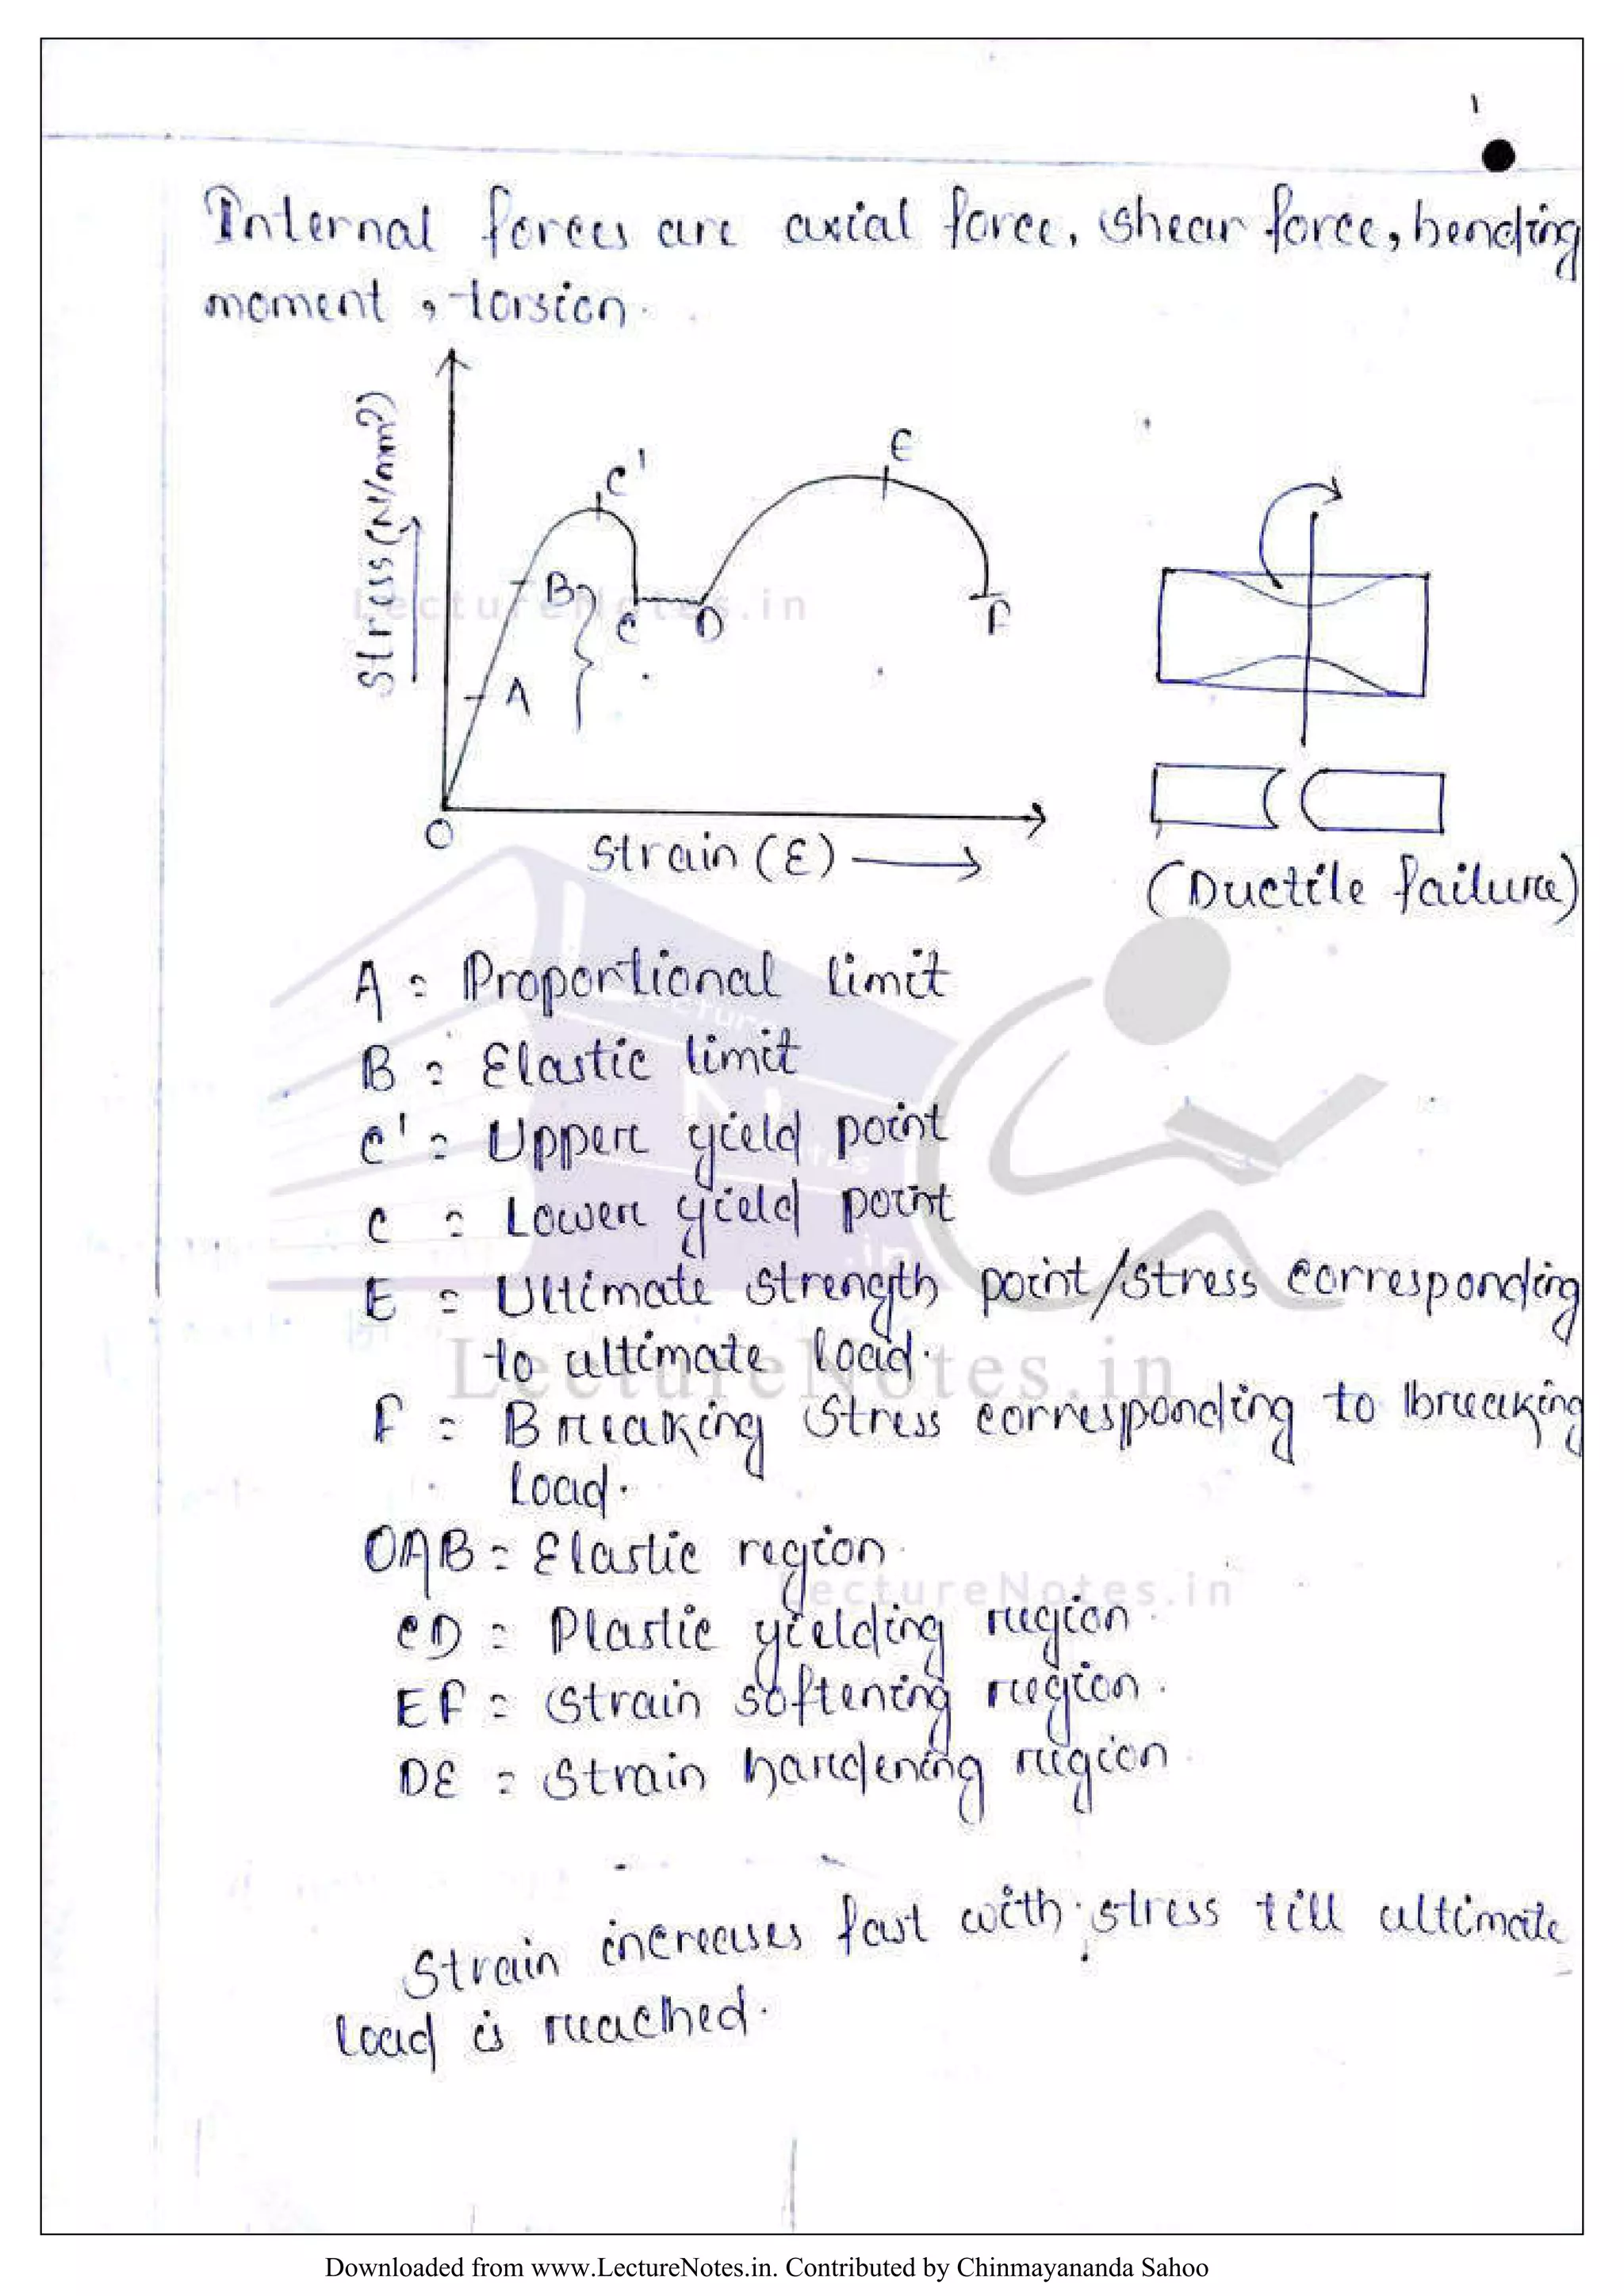 1
Internal forces are axial force, shear force, bending
moment, torsion.
Stress (N/mm²)
C'
E
B
C
D
F
A
O
Strain (ε)
(Ductile failure)
A = Proportional limit
B = Elastic limit
C' = Upper yield point
C = Lower yield point
E = Ultimate strength point/stress corresponding
to ultimate load.
F = Breaking stress corresponding to breaking
load.
OAB = Elastic region
CD = Plastic yielding region
EF = Strain softening region.
DE = Strain hardening region
Strain increases fast with stress till ultimate
load is reached.
LectureNotes.in
LectureNotes.in
LectureNotes.in
Downloaded from www.LectureNotes.in. Contributed by Chinmayananda Sahoo